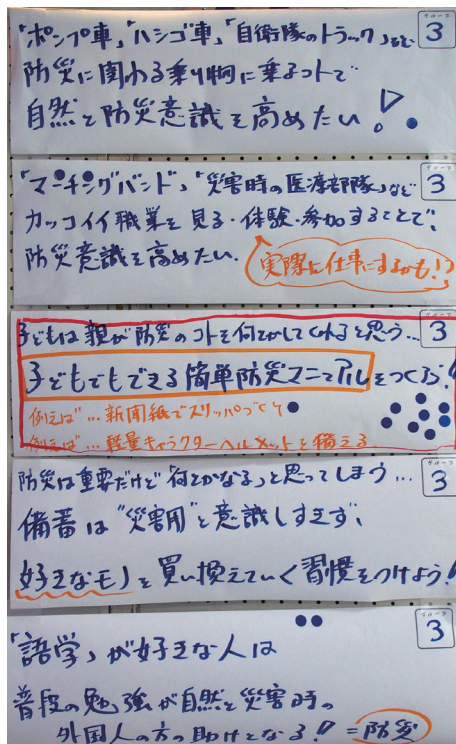 グループ
3
「ポンプ車」「ハシゴ車」「自衛隊のトラック」など
防災に関わる乗り物に乗るコトで
自然と防災意識を高めたい!
グループ
3
「マーチングバンド」「災害時の医療部隊」など
カッコイイ職業を見る・体験・参加することで、
防災意識を高めたい.
実際に仕事にするかも!?
グループ
3
子どもは親が防災のコトを何とかしてくれると思う…
子どもでもできる簡単防災マニュアルをつくろう!
例えば…新聞紙でスリッパづくり
例えば…軽量キャラクターヘルメットを備える
グループ
3
防災は重要だけど「何とかなる」と思ってしまう…
備蓄は"災害用"と意識しすぎず、
好きなモノを買い換えていく習慣をつけよう!
グループ
3
「語学」が好きな人は
普段の勉強が自然と災害時の
外国人の方の助けとなる!! =防災